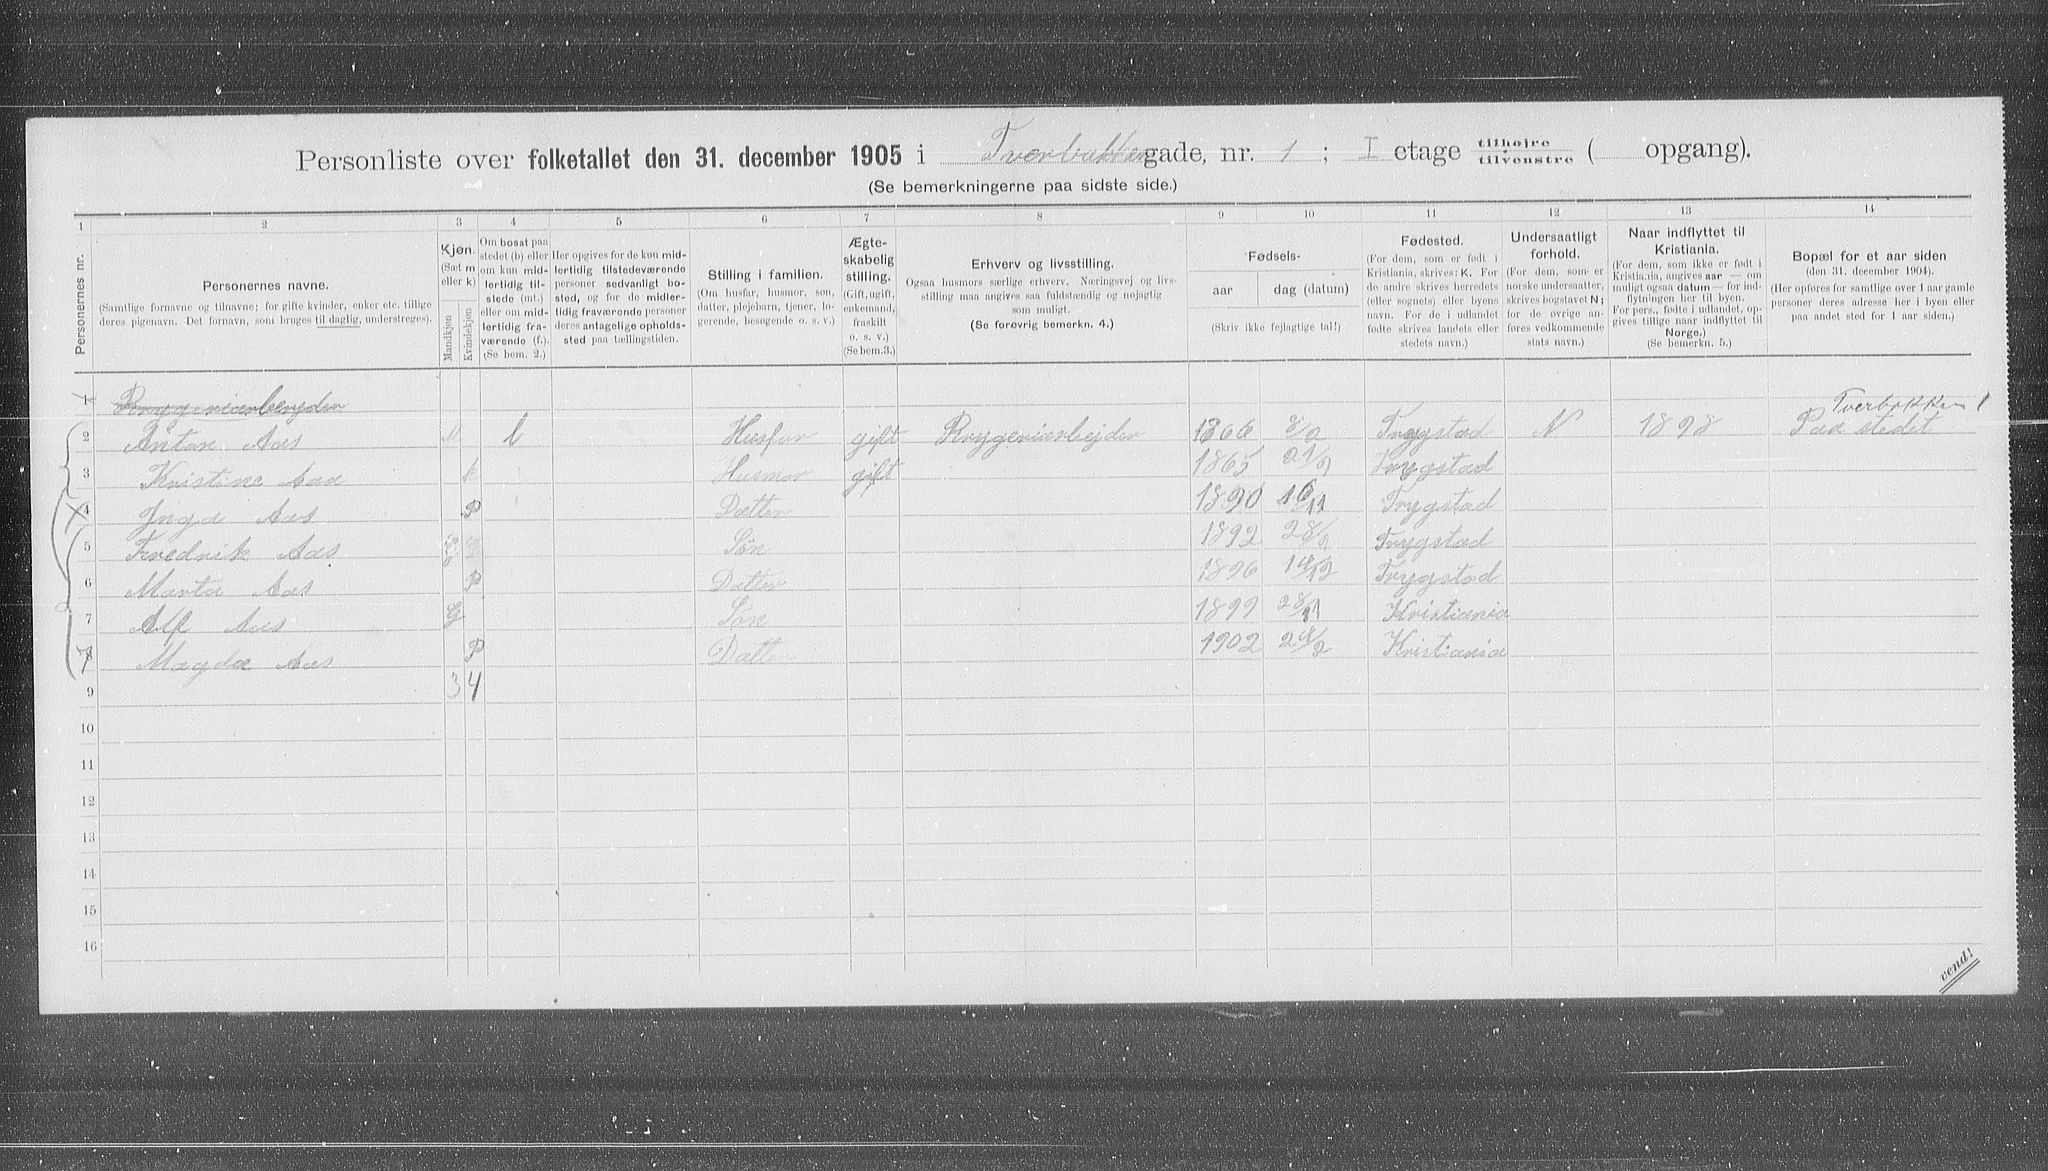 Personliste over folketallet den 31. december 1905 i Tverbakken gade, nr. 1 ; I etage tilhøjre tilvenstre ( opgang).
(Se bemerkningerne paa sidste side.)
1 2 3 4 5 6 7 8 9 10 11 12 13 14
Personernes nr.
Personernes navne.
(Samtlige fornavne og tilnavne; for gifte kvinder, enker etc. tillige
deres pigenavn. Det fornavn, som bruges til daglig, understreges).
Kjøn.
(Sæt m
eller k)
Mandkjøn
Kvindekjøn
Om bosat paa
stedet (b) eller
om kun mid-
lertidig til-
stede (mt.)
eller om mid-
lertidig fra-
værende (f.).
(Se bem. 2.)
Her opgives for de kun mid-
lertidig tilstedeværende
personer sedvanligt bo-
sted, og for de midler-
tidig fraværende personer
deres antagelige opholds-
sted paa tællingstiden.
Stilling i familien.
(Om husfar, husmor, søn,
datter, plejebarn, tjener, lo-
gerende, besøgende o. s. v.)
Ægte-
skabelig
stilling.
(Gift, ugift,
enkemand,
fraskilt
o. s. v.)
(Se bem.3.)
Erhverv og livsstilling.
Ogsaa husmors særlige erhverv. Næringsvej og livs-
stilling maa angives saa fuldstændig og nøjagtig
som muligt.
(Se forøvrig bemerkn. 4.)
Fødsels-
aar
dag (datum)
(Skriv ikke fejlagtige tal!)
Fødested.
(For dem, som er født i
Kristiania, skrives: K. For
de andre skrives herredets
(eller sognets) eller byens
navn. For de i udlandet
fødte skrives landets eller
stedets navn.)
Undersaatligt
forhold.
(For dem, som er
norske undersaatter,
skrives bogstavet N;
for de øvrige an-
føres vedkommende
stats navn.)
Naar indflyttet til
Kristiania.
(For dem, som ikke er født i
Kristiania, angives aar — om
muligt ogsaa datum — for ind-
flytningen her til byen.
For pers., fødte i udlandet, op-
gives tillige naar indflyttet til
Norge.)
(Se bemerkn. 5.)
Bopæl for et aar siden
(den 31. december 1904).
(Her opføres for samtlige over 1 aar gamle
personer deres adresse her i byen eller
paa andet sted for 1 aar siden.)
1 Bryggeriarbeyder
Tverbakken 1
2 Anton Aas M b Husfar gift Bryggeriarbejder 1866 Trygstad N 1898 Paa stedet
3 Kristine Aas k Husmor gift 1865 21/9 Trygstad
4 Inga Aas P Datter 1890 16/11 Trygstad
5 Fredrik Aas G Søn 1892 28/9 Trygstad
6 Marta Aas P Datter 1896 14/12 Trygstad
7 Alf Aas G Søn 1899 28/11 Kristiania
8 Magda Aas P Datter 1902 24/2 Kristiania
9 3 4
10
11
12
13
14
15
16
vend!